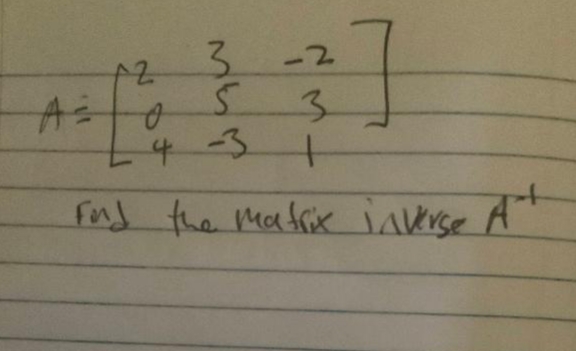 A = [2 3 -2]
0 5 3
4 -3 1
Find the matrix inverse A⁻¹